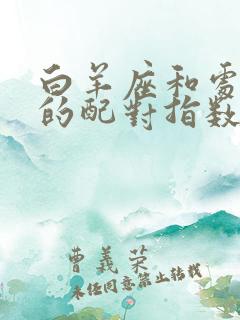 白羊座和處
的配對指数
曹義荣
未经同意禁止转载